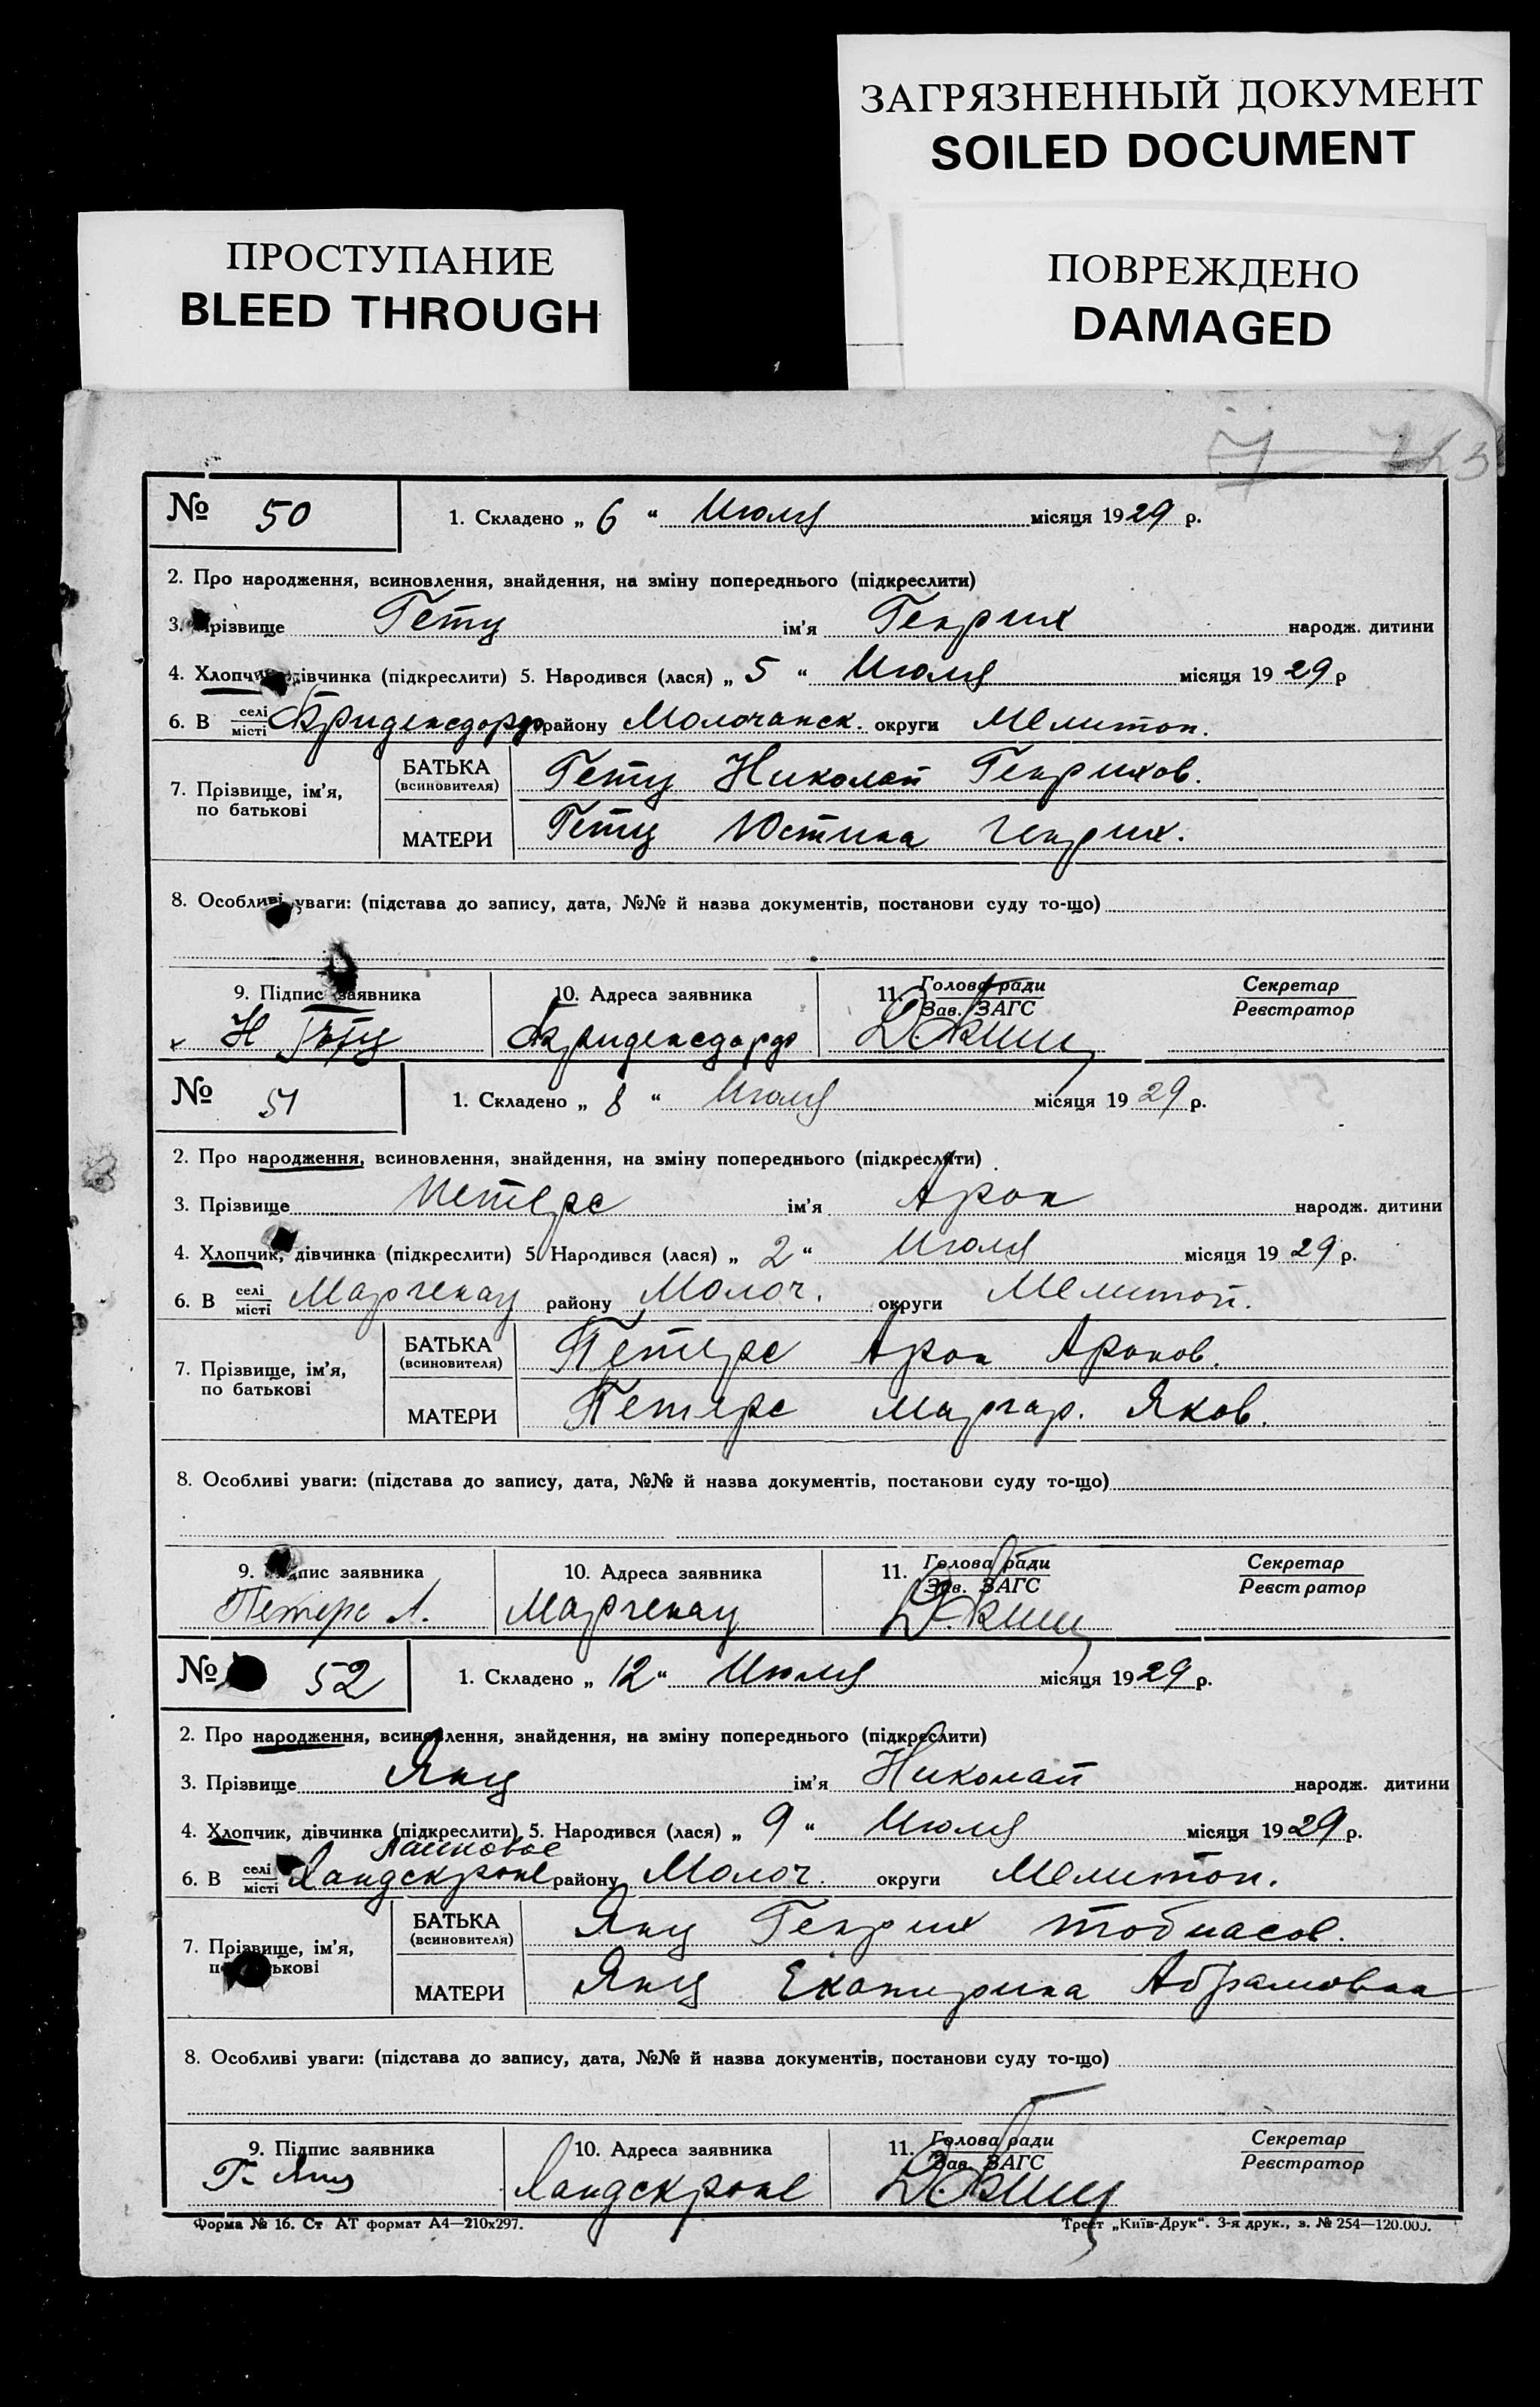 ЗАГРЯЗНЕННЫЙ ДОКУМЕНТ
SOILED DOCUMENT
ПРОСТУПАНИЕ
BLEED THROUGH
ПОВРЕЖДЕНО
DAMAGED
№ 50 1. Складено „ 6 “ Июля місяця 1929 р.
2. Про народження, всиновлення, знайдення, на зміну попереднього (підкреслити)
3. Прізвище Гетц ім'я Генрих народж. дитини
4. Хлопчик, дівчинка (підкреслити) 5. Народився (лася) „ 5 “ Июля місяця 19 29 р
6. В селі місті Фриденсдорф району Молочанск. округи Мелитоп.
7. Прізвище, ім'я, по батькові БАТЬКА (всиновителя) Гетц Николай Генрихов.
МАТЕРИ Гетц Юстина Генрих.
8. Особливі уваги: (підстава до запису, дата, №№ й назва документів, постанови суду то-що)
9. Підпис заявника 10. Адреса заявника 11. Голова ради Зав. ЗАГС Секретар Реєстратор
Н Гетц Фриденсдорф
№ 51 1. Складено „ 8 “ Июля місяця 19 29 р.
2. Про народження, всиновлення, знайдення, на зміну попереднього (підкреслити)
3. Прізвище Петерс ім'я Арон народж. дитини
4. Хлопчик, дівчинка (підкреслити) 5. Народився (лася) „ 2 “ Июля місяця 19 29 р.
6. В селі місті Маргенау району Молоч. округи Мелитоп.
7. Прізвище, ім'я, по батькові БАТЬКА (всиновителя) Петерс Арон Аронов.
МАТЕРИ Петерс Маргар. Яков.
8. Особливі уваги: (підстава до запису, дата, №№ й назва документів, постанови суду то-що)
9. Підпис заявника 10. Адреса заявника 11. Голова ради Зав. ЗАГС Секретар Реєстратор
Петерс А. Маргенау
№ 52 1. Складено „ 12 “ Июля місяця 1929 р.
2. Про народження, всиновлення, знайдення, на зміну попереднього (підкреслити)
3. Прізвище Янц ім'я Николай народж. дитини
4. Хлопчик, дівчинка (підкреслити) 5. Народився (лася) „ 9 “ Июля місяця 1929 р.
6. В селі місті Ландскроне району Молоч. округи Мелитоп.
7. Прізвище, ім'я, по батькові БАТЬКА (всиновителя) Янц Генрих Тобиасов.
МАТЕРИ Янц Екатерина Абрамовна
8. Особливі уваги: (підстава до запису, дата, №№ й назва документів, постанови суду то-що)
9. Підпис заявника 10. Адреса заявника 11. Голова ради Зав. ЗАГС Секретар Реєстратор
Г. Янц Ландскроне
Форма № 16. Ст АТ формат А4—210х297. Трест „Київ-Друк“. 3-я друк., з. № 254—120.000.